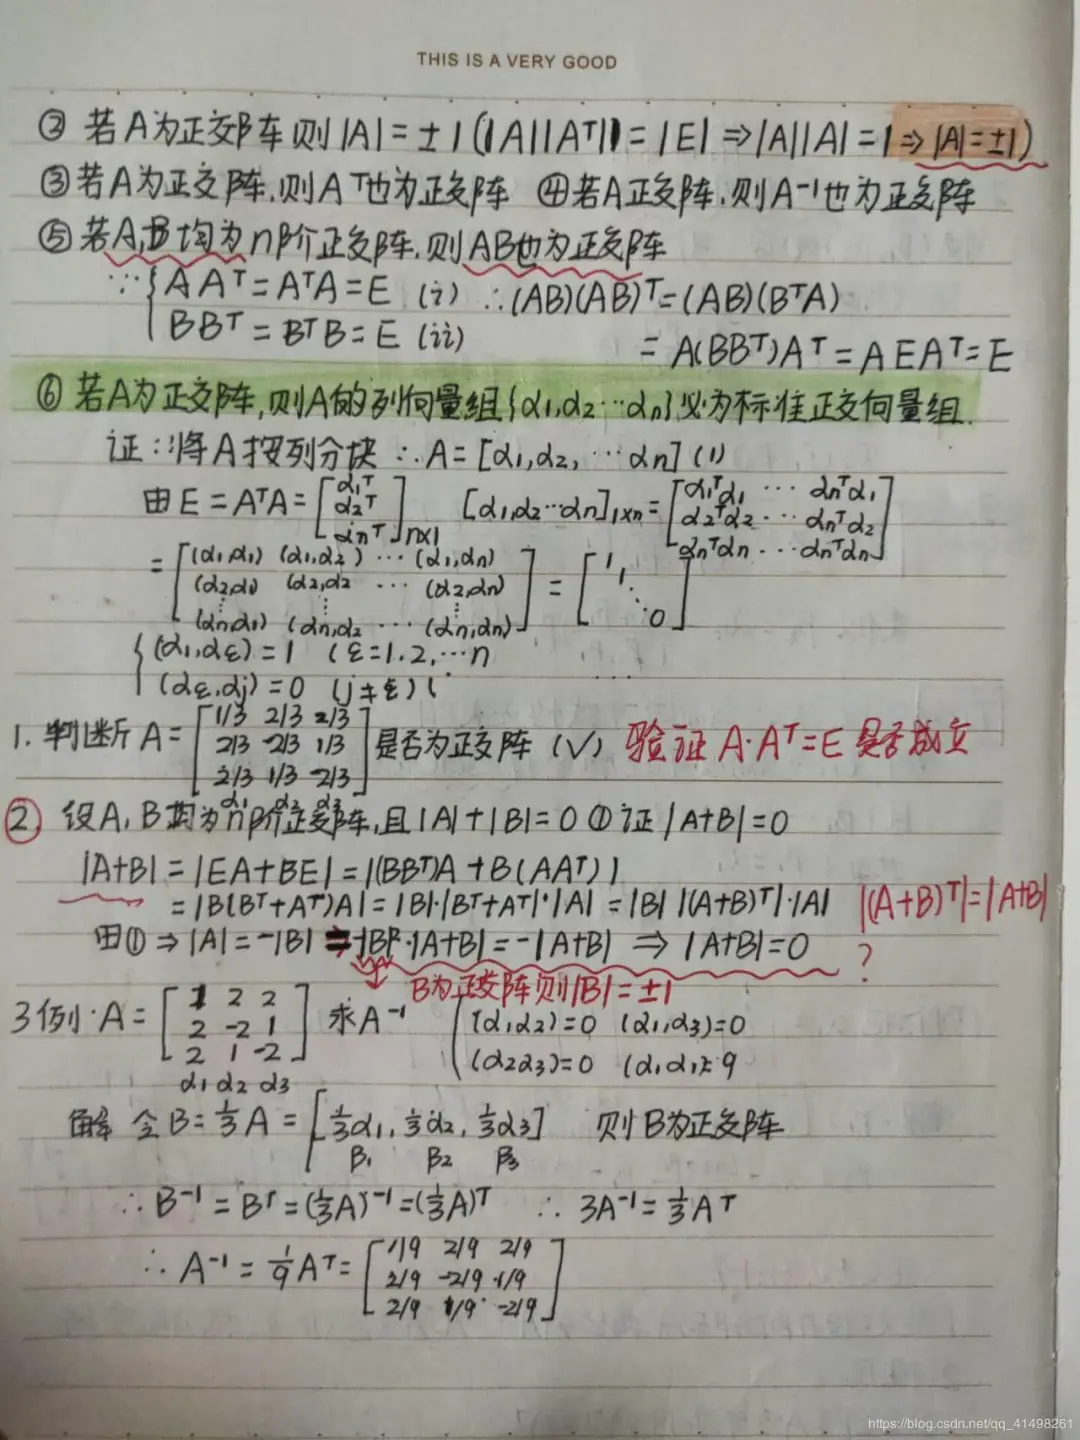 THIS IS A VERY GOOD
② 若A为正交阵则|A|=±1(|A||Aᵀ|=|E|⇒|A||A|=1⇒|A|=±1)
③若A为正交阵,则Aᵀ也为正交阵 ④若A正交阵,则A⁻¹也为正交阵
⑤若A,B均为n阶正交阵,则AB也为正交阵
∵{AAᵀ=AᵀA=E (i) ∴(AB)(AB)ᵀ=(AB)(BᵀA)
BBᵀ=BᵀB=E (ii)
=A(BBᵀ)Aᵀ=AEAᵀ=E
⑥若A为正交阵,则A的列向量组{α1,α2…αn}必为标准正交向量组.
证:将A按列分块 ∴A=[α1,α2,…αn] (1)
由E=AᵀA=[α1ᵀ α2ᵀ αnᵀ]n×1 [α1,α2…αn]1×n=[α1ᵀα1 … αnᵀα1
α2ᵀα2 … αnᵀα2
αnᵀαn … αnᵀαn]
=[(α1,α1) (α1,α2) … (α1,αn)
(α2,α1) (α2,α2 … (α2,αn)
⋮ ⋮ ⋮
(αn,α1) (αn,α2 … (αn,αn)] = [1 1 ⋱ 0]
{(α1,αε)=1 (ε=1.2,…n
(αε,αj)=0 (j≠ε) (
1. 判断A=[1/3 2/3 2/3
2/3 -2/3 1/3
2/3 1/3 -2/3] 是否为正交阵 (√) 验证A·Aᵀ=E是否成立
α1 α2 α3
②. 设A,B均为n阶正交阵,且|A|+|B|=0 ① 证|A+B|=0
|A+B|=|EA+BE|=|(BBᵀ)A+B(AAᵀ)|
=|B(Bᵀ+Aᵀ)A|=|B|·|Bᵀ+Aᵀ|·|A|=|B| |(A+B)ᵀ|·|A| |(A+B)ᵀ|=|A+B|
由①⇒|A|=-|B| = -|B|²·|A+B|=-|A+B| ⇒ |A+B|=0 ?
B为正交阵则|B|=±1
3例·A=[1 2 2
2 -2 1
2 1 -2] 求A⁻¹ {(α1,α2)=0 (α1,α3)=0
(α2α3)=0 (α1,α1)=9
α1 α2 α3
解 令B=⅓A=[⅓α1,⅓α2,⅓α3] 则B为正交阵
β1 β2 β3
∴B⁻¹=Bᵀ=(⅓A)⁻¹=(⅓A)ᵀ ∴3A⁻¹=⅓Aᵀ
∴A⁻¹=1/9Aᵀ=[1/9 2/9 2/9
2/9 -2/9 1/9
2/9 1/9 -2/9]
https://blog.csdn.net/qq_41498261